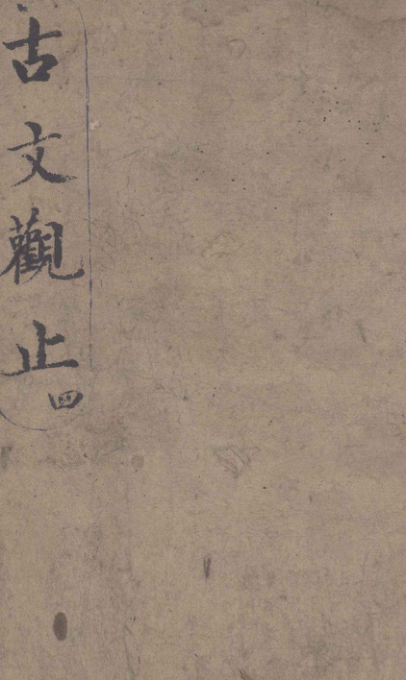 古文觀止四